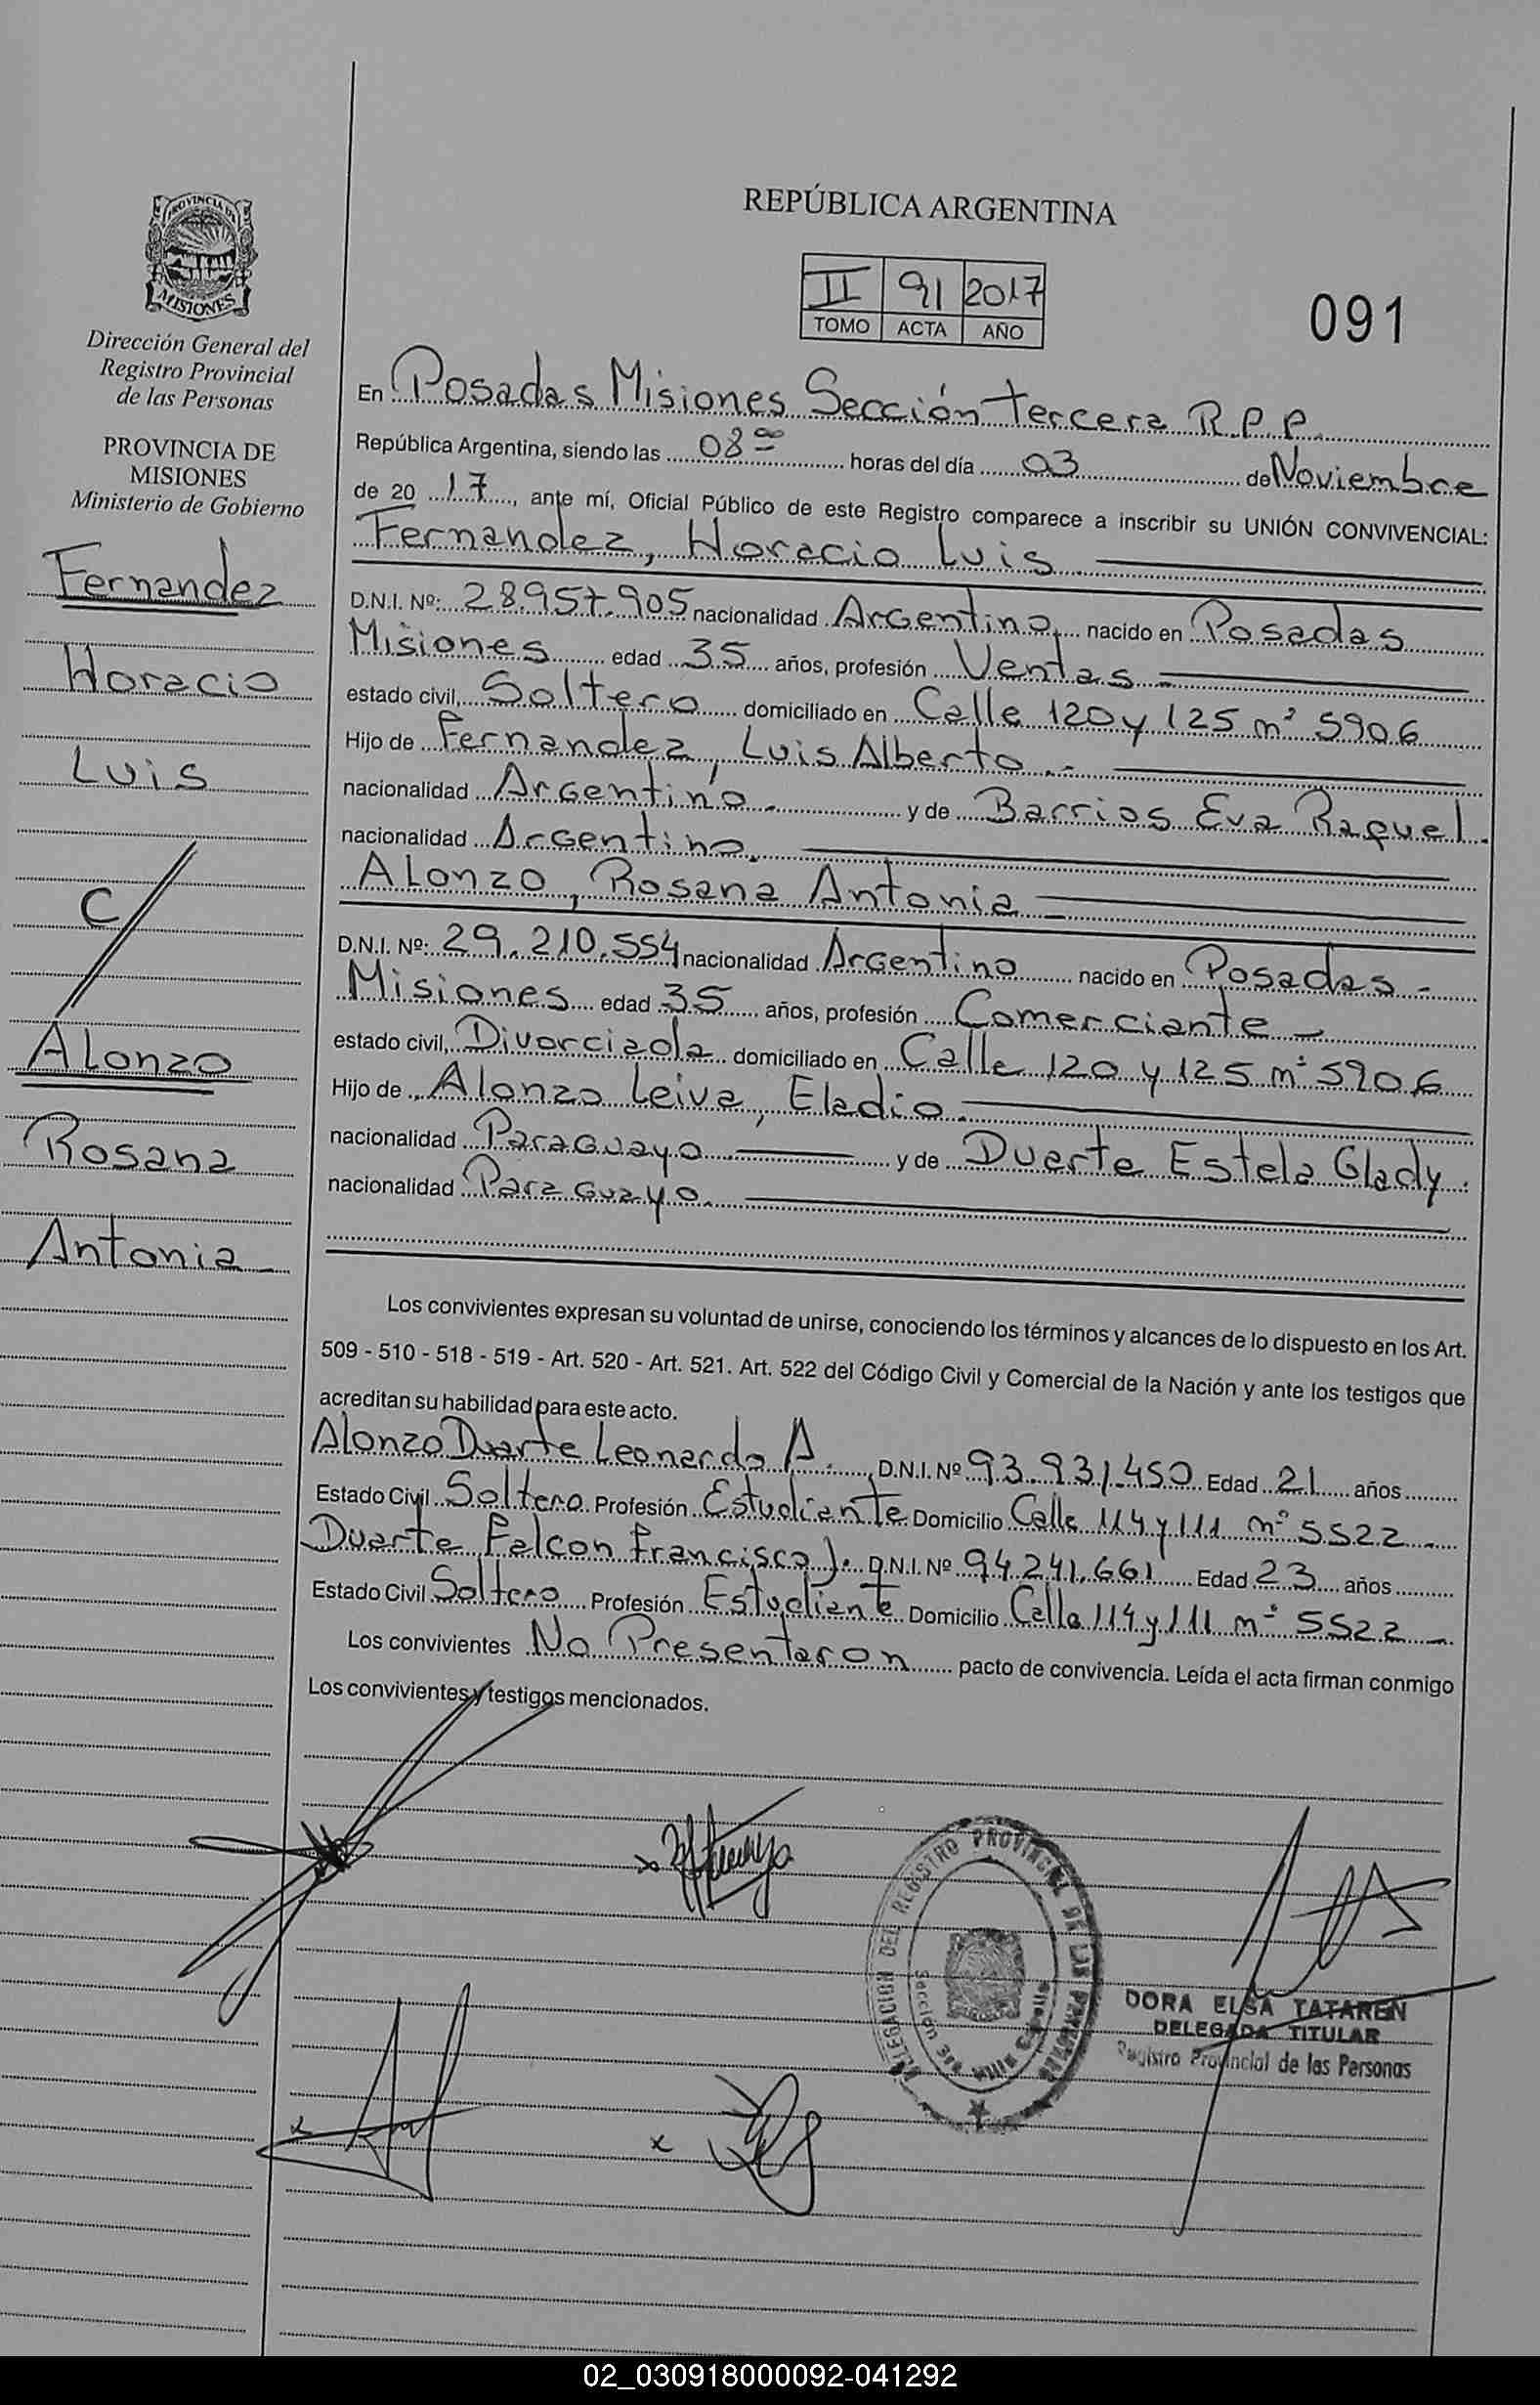 PROVINCIA DE
MISIONES
Dirección General del
Registro Provincial
de las Personas
PROVINCIA DE
MISIONES
Ministerio de Gobierno
Fernandez
Horacio
Luis
C/
Alonzo
Rosana
Antonia
REPÚBLICA ARGENTINA
II 91 2017
TOMO ACTA AÑO
091
En Posadas Misiones Sección tercera R.P.P.
República Argentina, siendo las 08 00 horas del día 03 de Noviembre
de 20 17, ante mí, Oficial Público de este Registro comparece a inscribir su UNIÓN CONVIVENCIAL:
Fernandez, Horacio Luis
D.N.I. Nº: 28.957.905 nacionalidad Argentino nacido en Posadas
Misiones edad 35 años, profesión Ventas -
estado civil, Soltero domiciliado en Calle 120 y 125 mº 5906
Hijo de Fernandez, Luis Alberto.-
nacionalidad Argentino. y de Barrios Eva Raquel.
nacionalidad Argentino.
Alonzo, Rosana Antonia
D.N.I. Nº: 29.210.554 nacionalidad Argentino nacido en Posadas -
Misiones edad 35 años, profesión Comerciante -
estado civil, Divorciada domiciliado en Calle 120 y 125 mº 5906
Hijo de Alonzo Leiva, Eladio.
nacionalidad Paraguayo y de Duarte Estela Glady.
nacionalidad Paraguayo.
Los convivientes expresan su voluntad de unirse, conociendo los términos y alcances de lo dispuesto en los Art.
509 - 510 - 518 - 519 - Art. 520 - Art. 521. Art. 522 del Código Civil y Comercial de la Nación y ante los testigos que
acreditan su habilidad para este acto.
Alonzo Duarte Leonardo A. D.N.I. Nº 93.931.450 Edad 21 años
Estado Civil Soltero Profesión Estudiante Domicilio Calle 114 y 111 mº 5522
Duarte Falcon Francisco J. D.N.I. Nº 94.241.661 Edad 23 años
Estado Civil Soltero Profesión Estudiante Domicilio Calle 114 y 111 mº 5522
Los convivientes No Presentaron pacto de convivencia. Leída el acta firman conmigo
Los convivientes y testigos mencionados.
DELEGACION DEL REGISTRO PROVINCIAL DE LAS PERSONAS
Sección 3ra
DORA ELSA TATAREN
DELEGADA TITULAR
Registro Provincial de las Personas
02_030918000092-041292